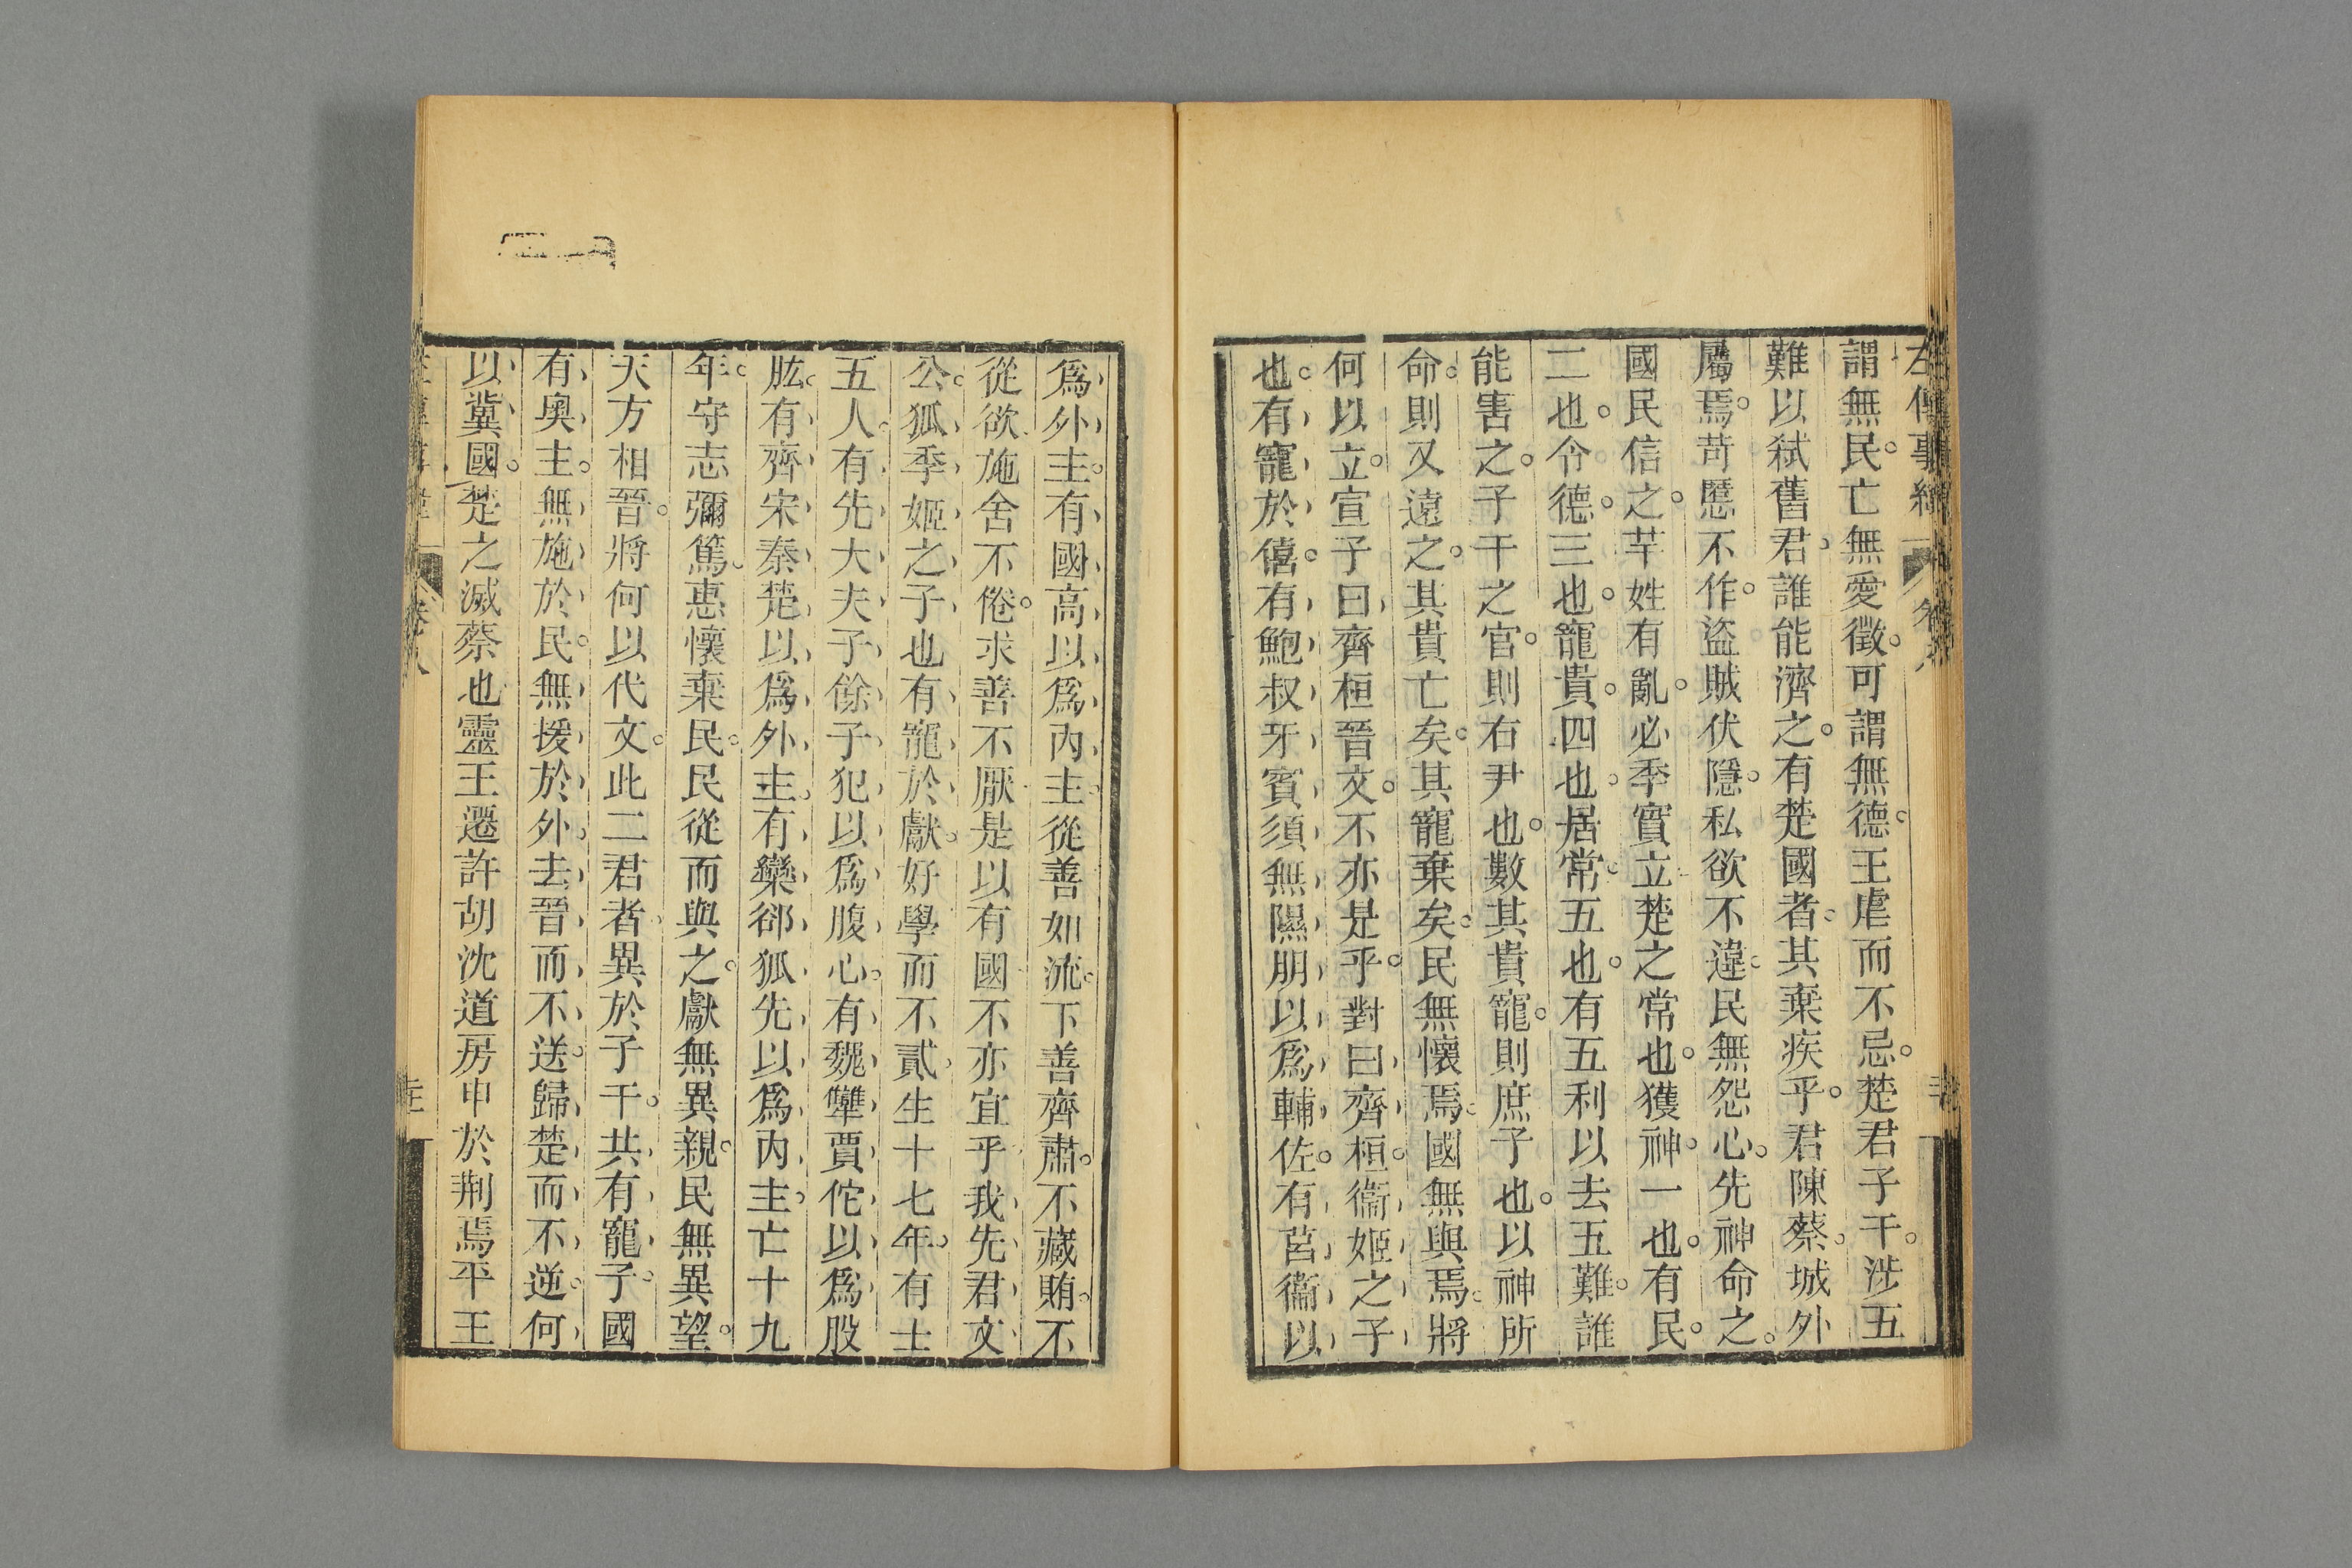 謂無民。亡無愛徵。可謂無德。王虐而不忌。楚君子干。涉五
難以弑舊君。誰能濟之。有楚國者。其棄疾乎。君陳蔡。城外
屬焉。苛慝不作。盜賊伏隱。私欲不違。民無怨心。先神命之。
國民信之。芉姓有亂。必季實立。楚之常也。獲神。一也。有民。
二也。令德。三也。寵貴。四也。居常。五也。有五利以去五難。誰
能害之。子干之官。則右尹也。數其貴寵。則庶子也。以神所
命。則又遠之。其貴亡矣。其寵棄矣。民無懷焉。國無與焉。將
何以立。宣子曰齊桓晉文。不亦是乎。對曰齊桓。衞姬之子
也。有寵於僖。有鮑叔牙賓須無隰朋以爲輔佐。有莒衞以
爲外主。有國高以爲內主。從善如流。下善齊肅。不藏賄。不
從欲施舍不倦。求善不厭是以有國不亦宜乎我先君文
公。狐季姬之子也有寵於獻。好學而不貳。生十七年。有士
五人。有先大夫子餘子犯以爲腹心。有魏犨賈佗以爲股
肱。有齊宋秦楚以爲外主。有欒郤狐先以爲內主。亡十九
年。守志彌篤。惠懷棄民。民從而與之。獻無異親。民無異望。
天方相晉。將何以代文。此二君者。異於子干。共有寵子。國
有奧主。無施於民。無援於外。去晉而不送。歸楚而不逆。何
以冀國。楚之滅蔡也靈王遷許胡沈道房申於荆焉平王
卷八